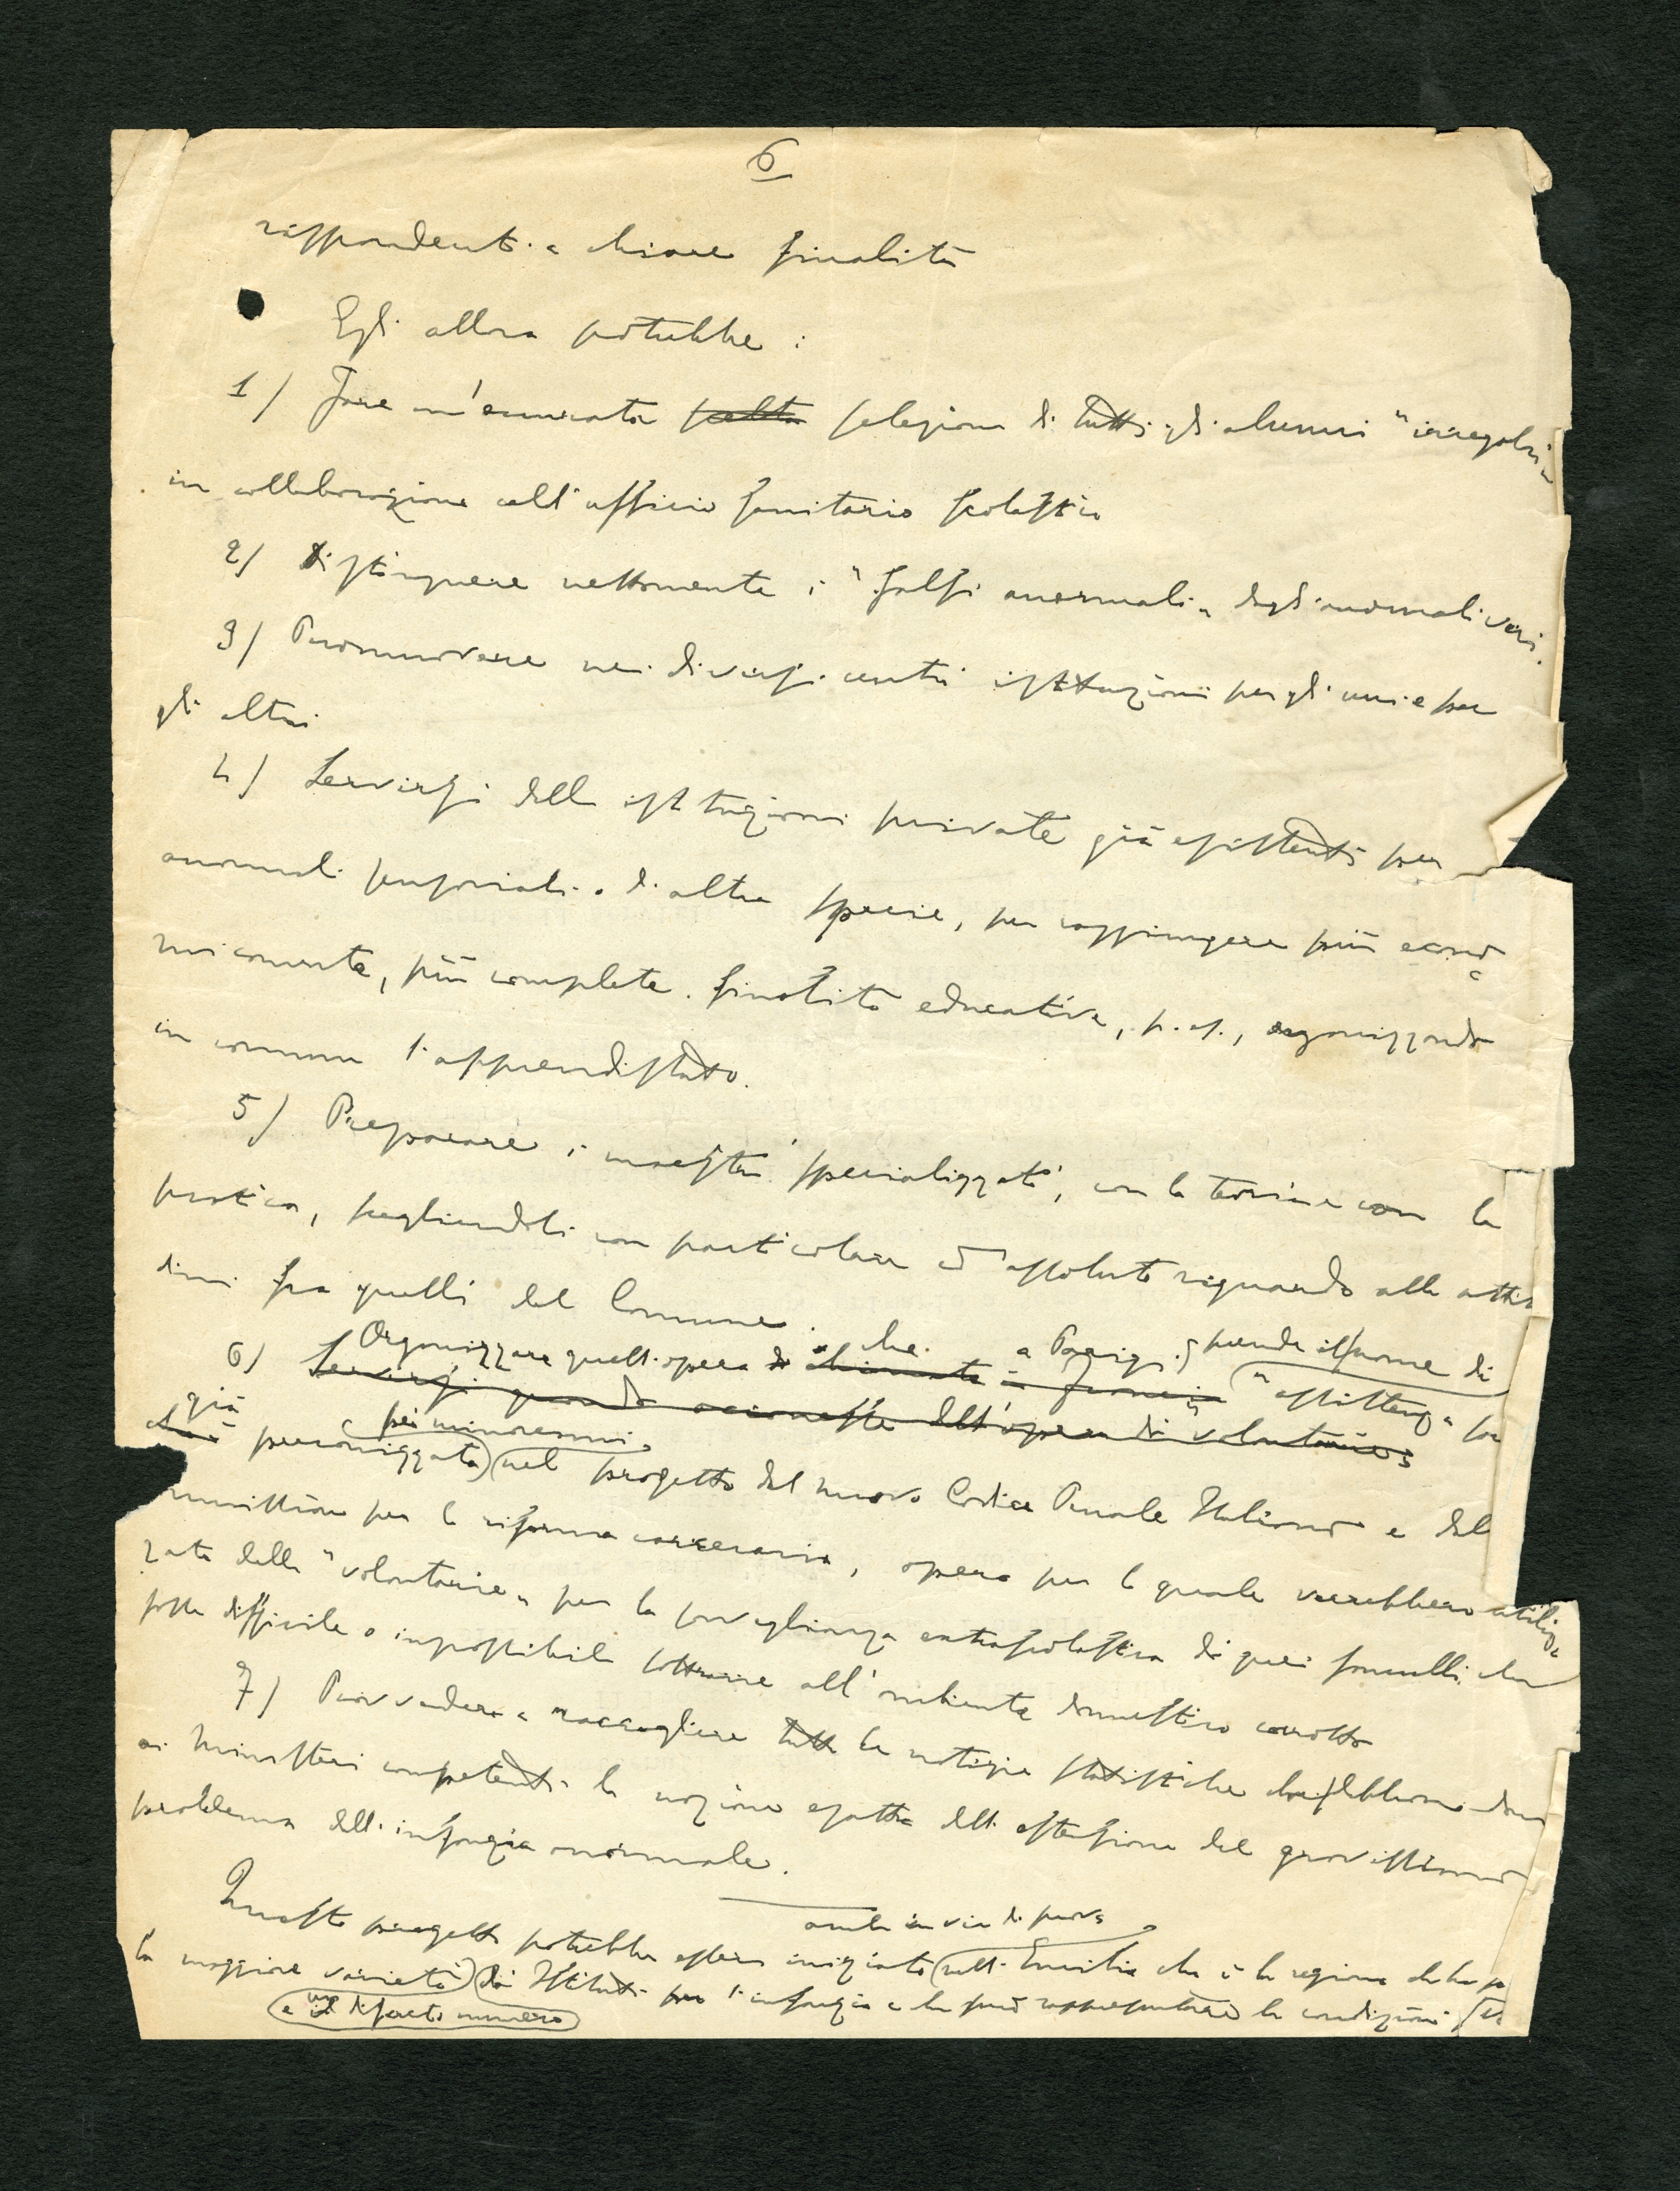 6
rispondenti a chiare finalità
Egli allora potrebbe :
1) Fare un'accurata scelta selezione di tutti gli alunni "irregolari"
in collaborazione coll'ufficio sanitario scolastico
2) Distinguere nettamente i "falsi anormali" dagli anormali veri.
3) Promuovere nei diversi centri istituzioni per gli uni e per
gli altri
4) Servirsi delle istituzioni private già esistenti per
anormali sensoriali o di altra specie, per raggiungere più econo
micamente, più complete finalità educative, p. es., organizzando
in comune l'apprendistato.
5) Preparare i maestri specializzati, con la teoria e con la
pratica, scegliendoli con particolare ed assoluto riguardo alle attitu
dini fra quelli del Comune.
Organizzare quell'opera che a Parigi prende il nome di
6) Servirsi quando occorresse dell'opera di volontarie
"assistenza
già pei minorenni
preconizzata nel progetto del nuovo Codice Penale Italiano e dal
per la riforma carceraria, opera per la quale verrebbero utiliz
zate delle "volontarie" per la sorveglianza extrascolastica di quei fanciulli che
fosse difficile o impossibile sottrarre all'ambiente domestico corrotto
7) Provvedere a raccogliere tutte le notizie statistiche che debbono dare
ai ministeri competenti la nozione esatta dell'estensione del gravissimo
problema dell'infanzia anormale.
anche in via di prova
Questo progetto potrebbe essere iniziato nell'Emilia che è la regione che ha
la maggiore varietà di Istituti per l'infanzia e che può rappresentare le condizioni
e un discreto numero